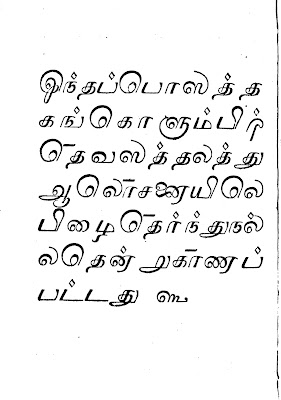 இந்தப்பொஸத்த
கங்கொளும்பிற்
தெவஸத்தலத்து
ஆலொசனையிலெ
பிழைதெர்ந்துநல்
லதென்றுகாணப்
பட்டது